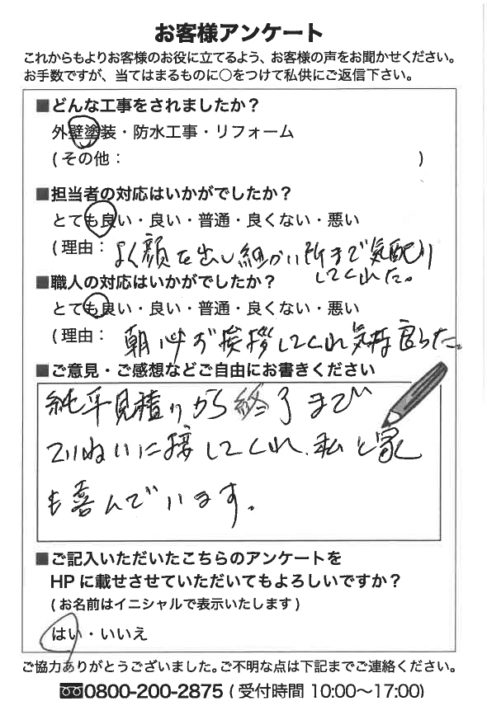 お客様アンケート
これからもよりお客様のお役に立てるよう、お客様の声をお聞かせください。
お手数ですが、当てはまるものに○をつけて私供にご返信下さい。
■どんな工事をされましたか？
外壁塗装・防水工事・リフォーム
(その他： )
■担当者の対応はいかがでしたか？
とても良い・良い・普通・良くない・悪い
(理由： よく顔を出し細かい所まで気配り
してくれた。
■職人の対応はいかがでしたか？
とても良い・良い・普通・良くない・悪い
(理由： 朝必ず挨拶してくれ気持良らった。
■ご意見・ご感想などご自由にお書きください
見積りから終了まで
ていねいに接してくれ、私と家
も喜んでいます。
■ご記入いただいたこちらのアンケートを
HPに載せさせていただいてもよろしいですか？
(お名前はイニシャルで表示いたします)
はい・いいえ
ご協力ありがとうございました。ご不明な点は下記までご連絡ください。
0800-200-2875 (受付時間 10:00〜17:00)